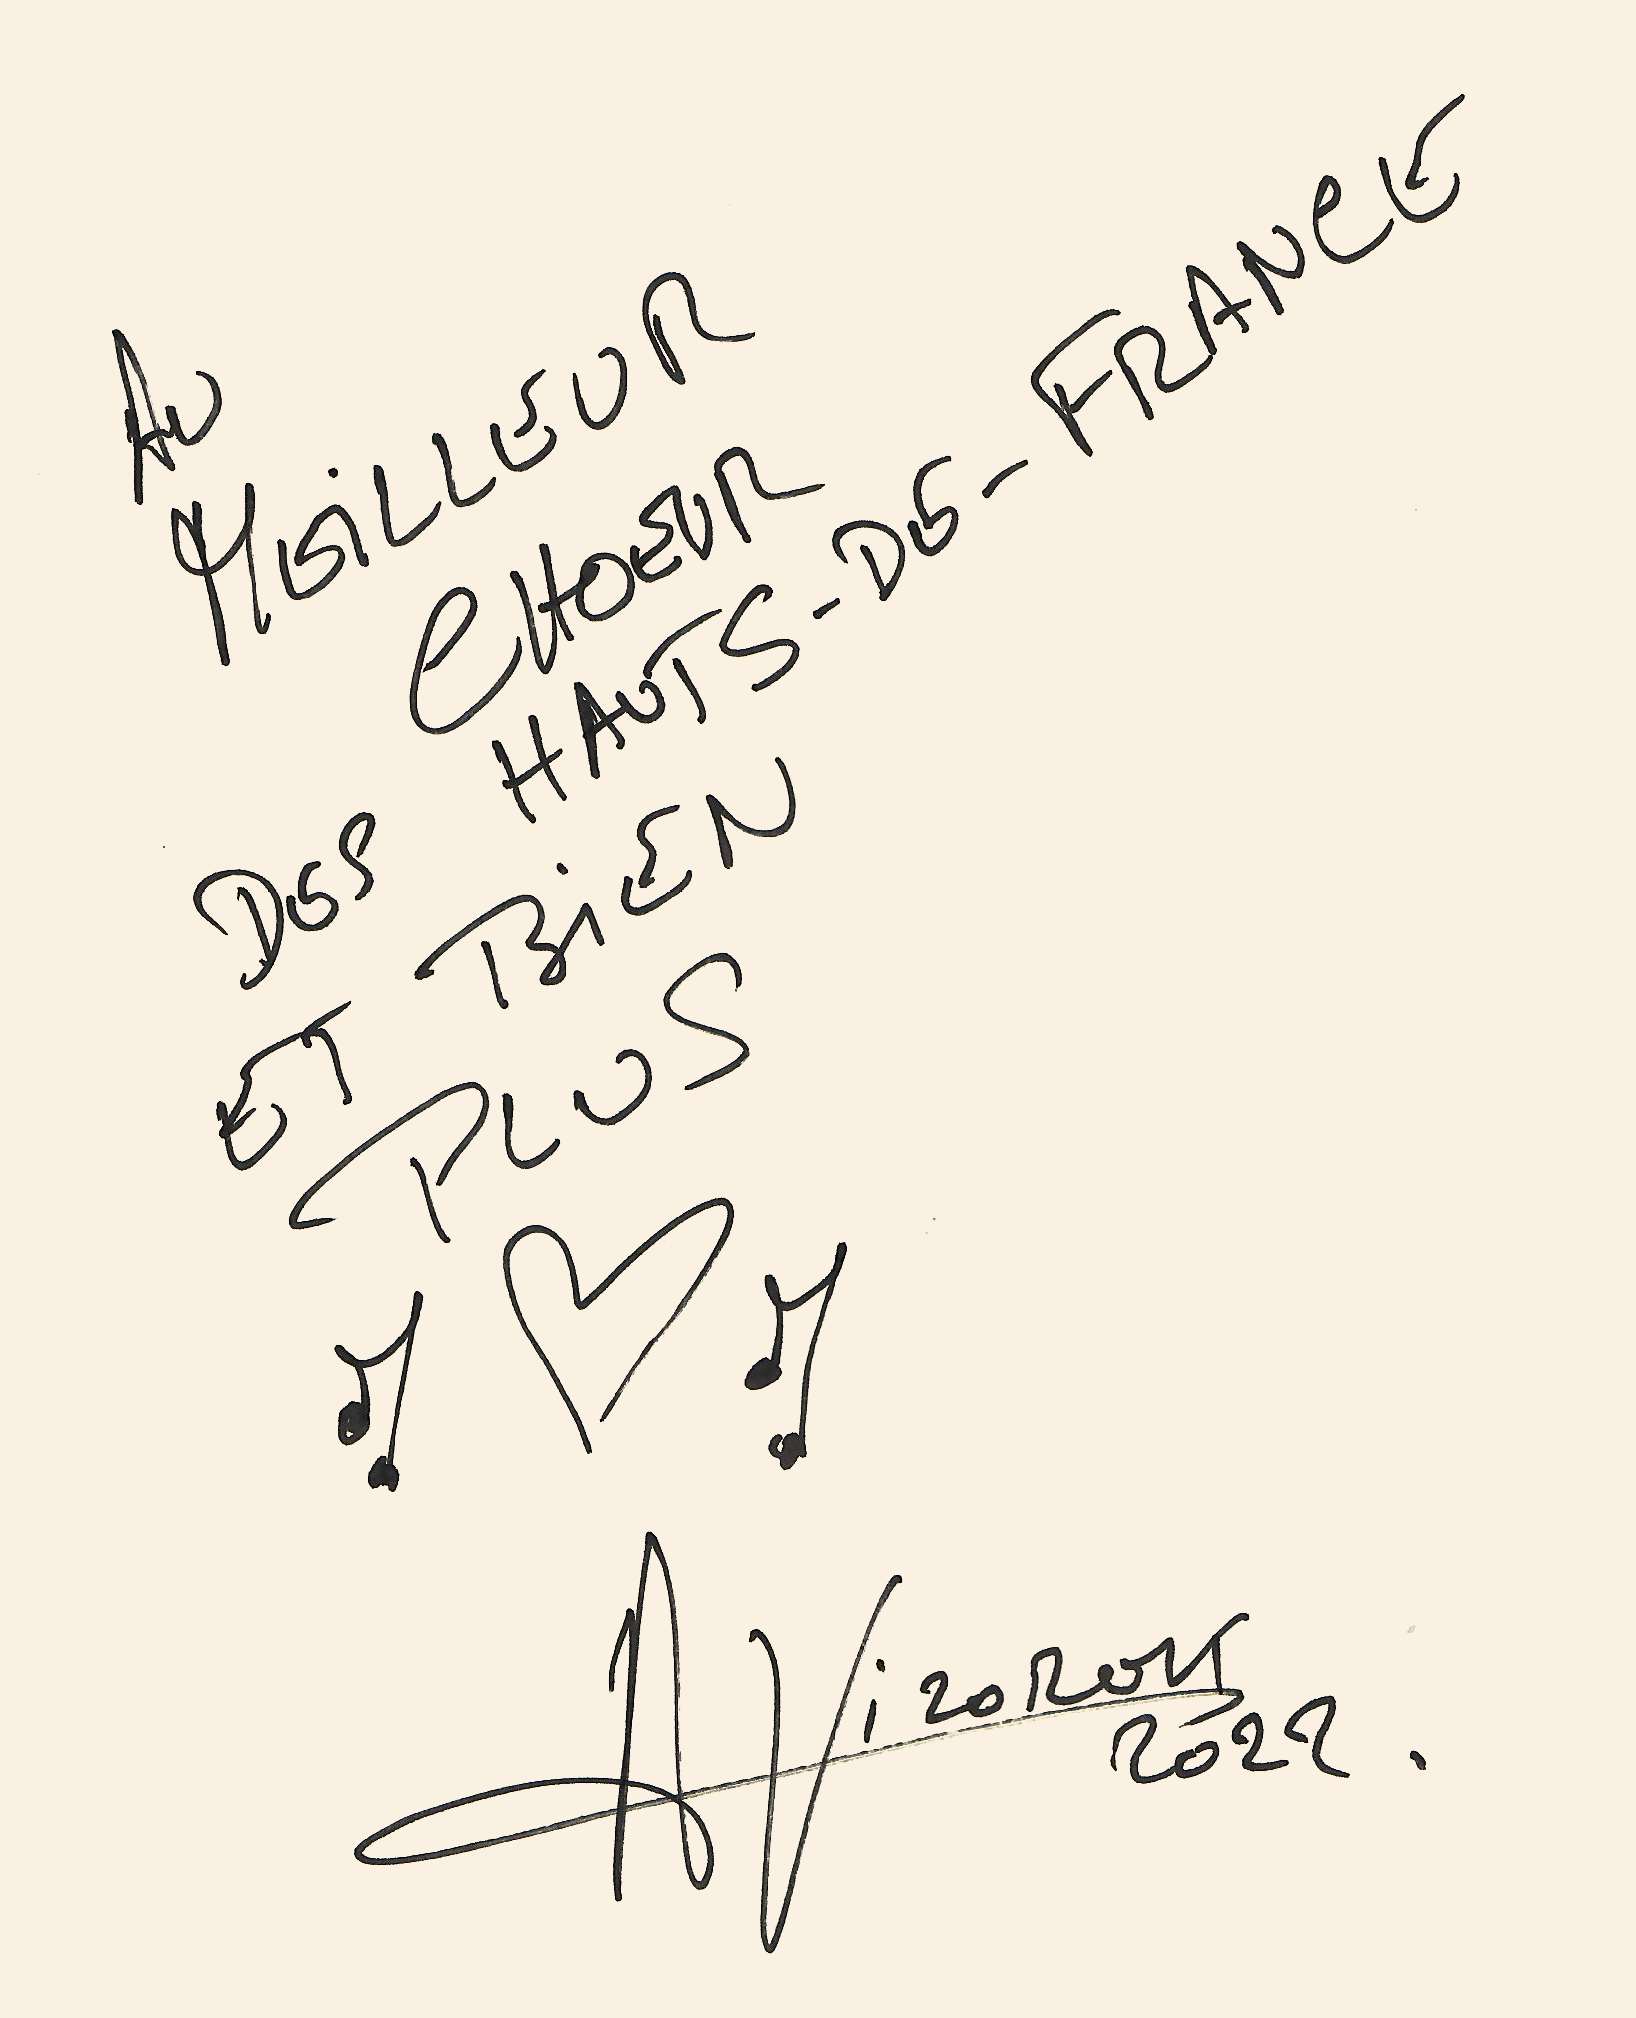 AU
MEiLLEUR
CHOEUR
DES HAUTS-DE-FRANCE
ET BiEN
PLUS
A Vizorek
2022.